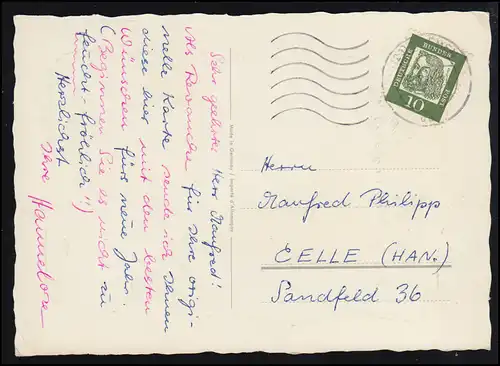 Sehr geehrter Herr Manfred!
Als Revanche für Ihre origi-
nelle Karte sende ich Ihnen
diese hier mit den besten
Wünschen fürs neue Jahr.
(Beginnen Sie es nicht zu
feucht-fröhlich!!)
Herzlichst
Ihre Hannelore
Made in Germany / Importé d'Allemagne
DEUTSCHE
BUNDES
POST
10
Herrn
Manfred Philipp
CELLE (HAN.)
Sandfeld 36